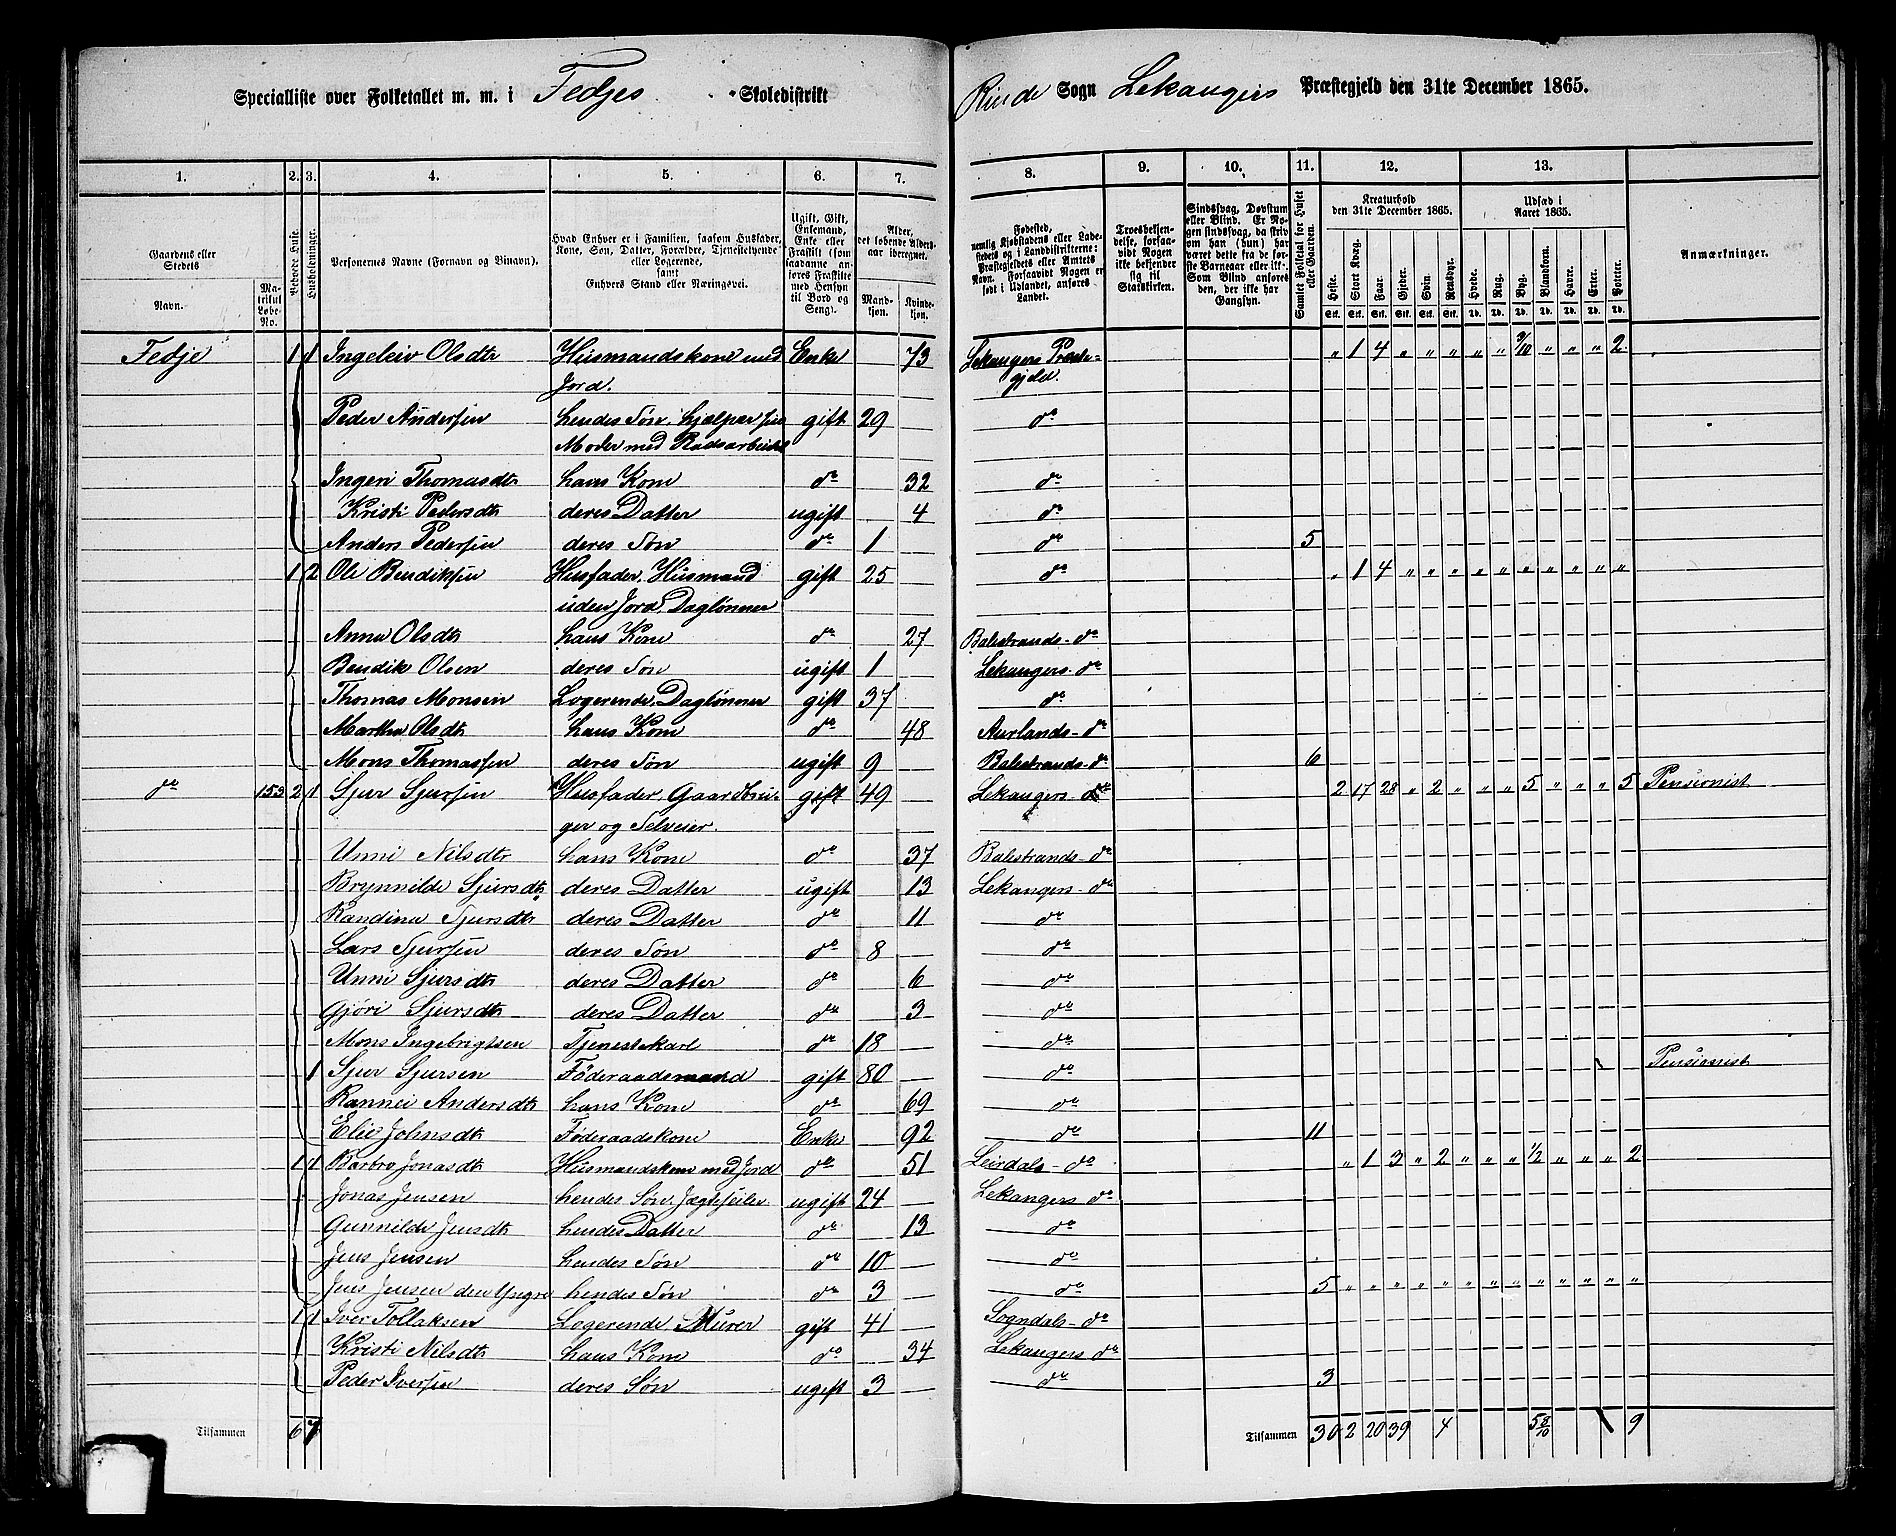 Specialliste over Folketallet m. m. i Fedjes Skoledistrikt Rinde Sogn Lekangers Præstegjeld den 31te December 1865.
1. 2. 3. 4. 5. 6. 7. 8. 9. 10. 11. 12. 13.
Gaardens eller Stedets Navn.
Matrikul Løbe-No.
Beboede Huse.
Husholdninger.
Personernes Navne (Fornavn og Binavn).
Hvad Enhver er i Familien, saasom Husfader, Kone, Søn, Datter, Forældre, Tjenestetyende eller Logerende, samt Enhvers Stand eller Næringsvei.
Ugift, Gift, Enkemand, Enke eller Fraskilt (som saadanne anføres Fraskilte med Hensyn til Bord og Seng).
Alder, det løbende Aldersaar iberegnet.
Mandkjøn. Kvindekjøn.
Fødested, nemlig Kjøbstadens eller Ladestedets og i Landdistrikterne: Præstegjeldets eller Amtets Navn. Forsaavidt Nogen er født i Udlandet, anføres Landet.
Troesbekjendelse, forsaavidt Nogen ikke bekjender sig til Statskirken.
Sindssvag, Døvstum eller Blind. Er Nogen sindssvag, da skriv om han (hun) har været det fra de første Barneaar eller ikke. Som Blind anføres den, der ikke har Gangsyn.
Samlet Folketal for Huset eller Gaarden.
Kreaturhold den 31te December 1865.
Heste. Stort Kvæg. Faar. Gjeder. Svin. Rensdyr.
Udsæd i Aaret 1865.
Hvede. Rug. Byg. Blandkorn. Havre. Erter. Poteter.
Anmærkninger.
Fedje 1 1 Ingeleiv Olsdtr Husmandskone med Enke 73 Lekangers Præste- " 1 4 " " " " " 3/10 " " " 2
Jord. gjeld.
Peder Andersen hendes Søn, hjælper sin gift 29 do
Moder med Raadsarbeide
Ingeri Thomasdtr hans Kone do 32 do
Kristi Pedersdtr deres Datter ugift 4 do
Anders Pedersen deres Søn do 1 do 5
1 2 Ole Bendiksen Husfader, Husmand gift 25 do " 1 4 " " " " " " " " " "
uden Jord, Daglønner
Anna Olsdtr hans Kone do 27 Balestrands-do
Bendik Olsen deres Søn ugift 1 Lekangers-do
Thomas Monsen Logerende, Daglønner gift 37 do
Martha Olsdtr hans Kone do 48 Aurlands-do
Mons Thomassen deres Søn ugift 9 Balestrands-do 6
do 153 2 1 Sjur Sjursen Husfader, Gaardbru- gift 49 Lekangers-do 2 17 28 " 2 " " " 5 " " " 5 Pensionist
ger og Selveier.
Unni Nilsdtr hans Kone do 37 Balestrands-do
Brynnilde Sjursdtr deres Datter ugift 13 Lekangers-do
Randina Sjursdtr deres Datter do 11 do
Lars Sjursen deres Søn do 8 do
Unni Sjursdtr deres Datter do 6 do
Gjøri Sjursdtr deres Datter do 3 do
Mons Ingebrigtsen Tjenestekarl do 18 do
1 Sjur Sjursen Føderaadsmand gift 80 do Pensionist
Rannei Andersdtr hans Kone do 69 do
Elie Johnsdtr Føderaadskone Enke 92 do 11
1 1 Barbro Jonasdtr Husmandskone med Jord do 51 Leirdals-do " 1 3 " 2 " " " 1/2 " " " 2
Jonas Jensen hendes Søn, Jægtseiler ugift 24 Lekangers do
Gunnilde Jensdtr hendes Datter do 13 do
Jens Jensen hendes Søn do 10 do
Jens Jensen den Yngre hendes Søn do 3 do 5 " " " " " " " " " " " " "
1 1 Iver Tollaksen Logerende, Murer gift 41 Sogndals-do
Kristi Nilsdtr hans Kone do 34 Lekangers do
Peder Iversen deres Søn ugift 3 do 3
Tilsammen 6 7 Tilsammen 30 2 20 39 4 5 8/10 9